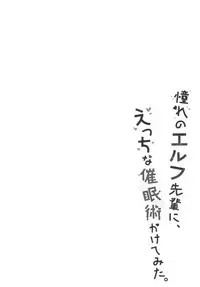 憧れのエルフ先輩に、
えっちな催眠術かけてみた。